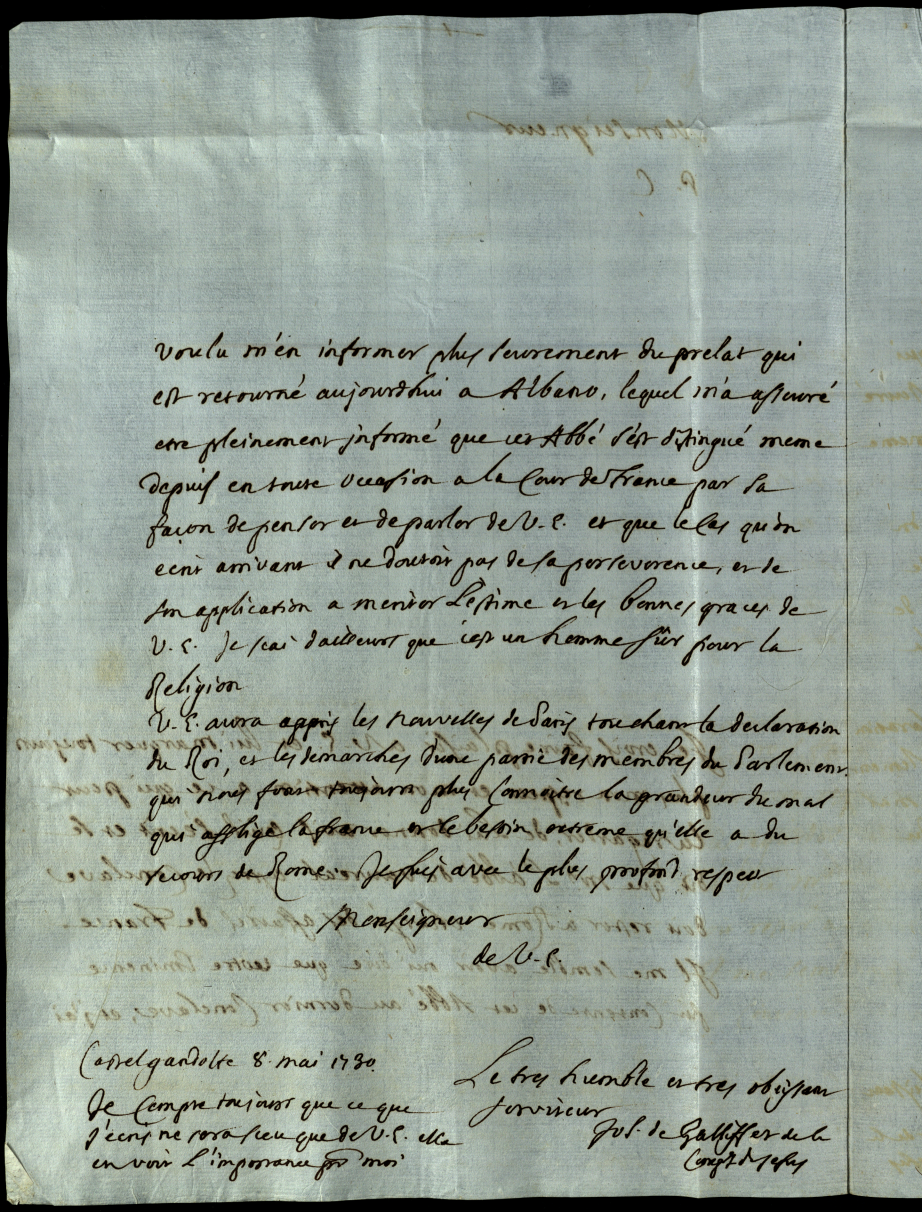 voulu m'en informer plus seurement du prelat qui
est retourné aujourdhui a Albano, lequel m'a asseuré
etre pleinement informé que cet Abbé s'est distingué meme
depuis en toute occasion a la Cour de France par sa
façon de penser et de parler de V. E. et que le cas qu'on
ecrit arrivant il ne doutoit pas de sa perseverence, et de
son application a meriter L'estime et les bonnes graces de
V. E. Je scai d'ailleurs que c'est un homme sûr pour la
Religion
V. E. aura appris les nouvelles de Paris touchant la declaration
du Roi, et les demarches d'une partie des membres du Parlement
qui nous font toujours plus connoitre la grandeur du mal
qui afflige la france et le besoin extreme qu'elle a du
secours de Rome. Je suis avec le plus profond respect
Monseigneur
de V. E.
Castelgandolfe 8. mai 1730.
Le tres humble et tres obeissant
serviteur
Jos. de Galliffet de la
Comp. de Jesus
Je compte toujours que ce que
j'ecris ne sera sceu que de V. E. elle
en voit l'importance pr moi
Monseigneur